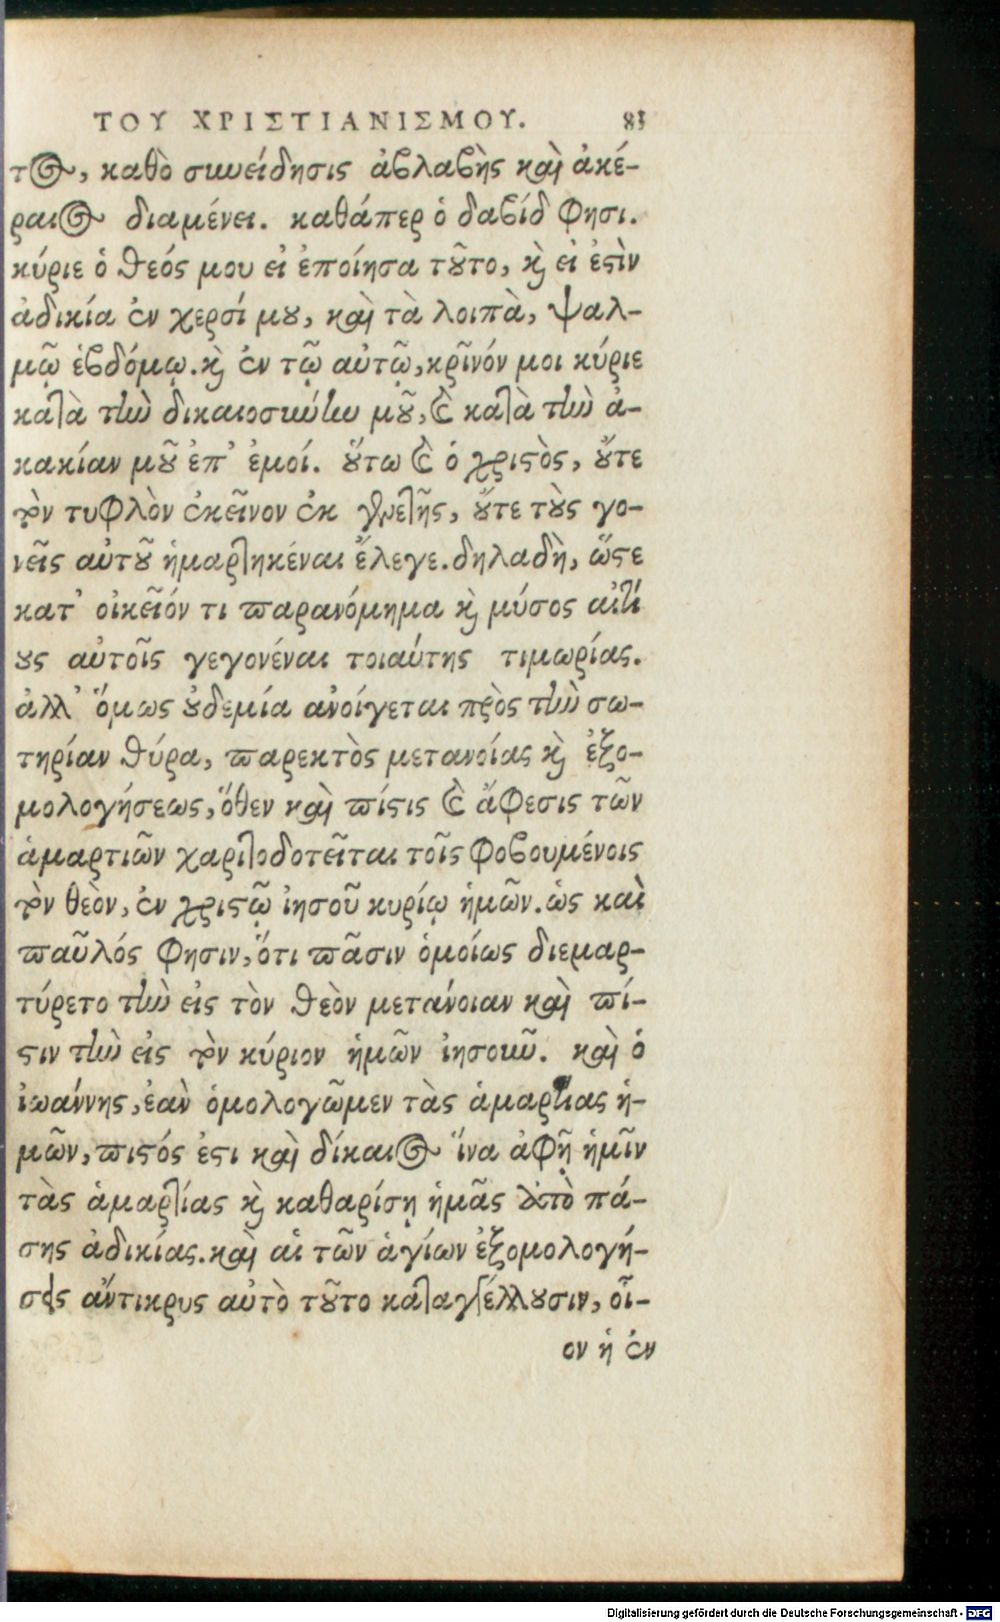 ΤΟΥ ΧΡΙΣΤΙΑΝΙΣΜΟΥ. 83
τος, καθὸ συνείδησις ἀβλαβὴς καὶ ἀκέ-
ραιος διαμένει. καθάπερ ὁ δαβίδ φησι.
κύριε ὁ θεός μου εἰ ἐποίησα τοῦτο, καὶ εἰ ἐστὶν
ἀδικία ἐν χερσί μου, καὶ τὰ λοιπὰ, ψαλ-
μῷ ἑβδόμῳ. καὶ ἐν τῷ αὐτῷ, κρῖνόν μοι κύριε
κατὰ τὴν δικαιοσύνην μοῦ, καὶ κατὰ τὴν ἀ-
κακίαν μοῦ ἐπ' ἐμοί. οὕτω καὶ ὁ χριστὸς, οὔτε
τὸν τυφλὸν ἐκεῖνον ἐκ γενετῆς, οὔτε τοὺς γο-
νεῖς αὐτοῦ ἡμαρτηκέναι ἔλεγε. δηλαδὴ, ὥστε
κατ' οἰκεῖόν τι παρανόμημα καὶ μύσος αἰτί
ους αὐτοῖς γεγονέναι τοιαύτης τιμωρίας.
ἀλλ' ὅμως οὐδεμία ἀνοίγεται πρὸς τὴν σω-
τηρίαν θύρα, παρεκτὸς μετανοίας καὶ ἐξο-
μολογήσεως, ὅθεν καὶ πίστις καὶ ἄφεσις τῶν
ἁμαρτιῶν χαριτοδοτεῖται τοῖς φοβουμένοις
τὸν θεὸν, ἐν χριστῷ ἰησοῦ κυρίῳ ἡμῶν. ὡς καὶ
παῦλός φησιν, ὅτι πᾶσιν ὁμοίως διεμαρ-
τύρετο τὴν εἰς τὸν θεὸν μετάνοιαν καὶ πί-
στιν τὴν εἰς τὸν κύριον ἡμῶν ἰησοῦν. καὶ ὁ
ἰωάννης, ἐὰν ὁμολογῶμεν τὰς ἁμαρτίας ἡ-
μῶν, πιστός ἐστι καὶ δίκαιος ἵνα ἀφῇ ἡμῖν
τὰς ἁμαρτίας καὶ καθαρίσῃ ἡμᾶς ἀπὸ πά-
σης ἀδικίας. καὶ αἱ τῶν ἁγίων ἐξομολογή-
σεις ἄντικρυς αὐτὸ τοῦτο καταγγέλλουσιν, οἷ-
ον ἡ ἐν
Digitalisierung gefördert durch die Deutsche Forschungsgemeinschaft - DFG